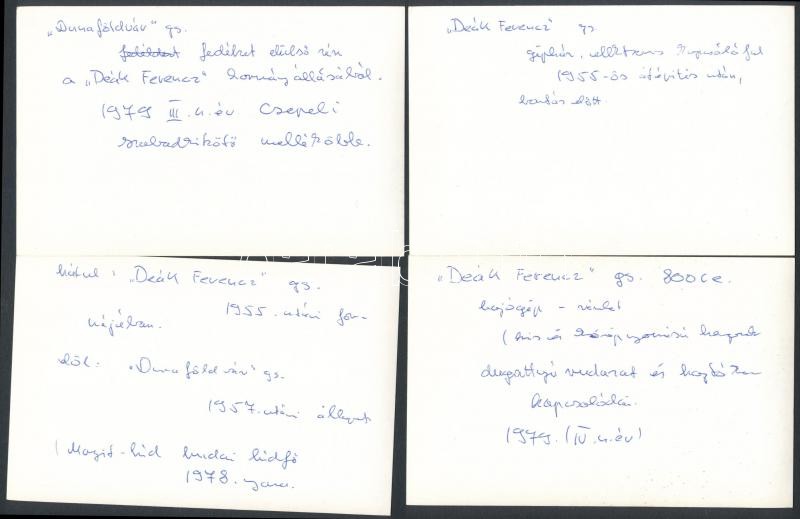 „Dunaföldvár" gs.
fedélzet elülső rész
a „Deák Ferenc" kormányállásából.
1979 III. n.év. Csepeli
szabadkikötő melléköble.
„Deák Ferenc" gs
gépház,
1955-ös átépítés után,
bontás előtt.
hátul: „Deák Ferenc" gs.
1955. utáni for-
májában.
elöl: „Dunaföldvár" gs.
1957. utáni állapot
(Margit-híd budai hídfő
1978. nyara.
„Deák Ferenc" gs. 800 LE.
hajógép - részlet
(kis és középnyomású hengerek
dugattyú rudazat és hajtókar
kapcsolódás.
1979. (IV. n.év)